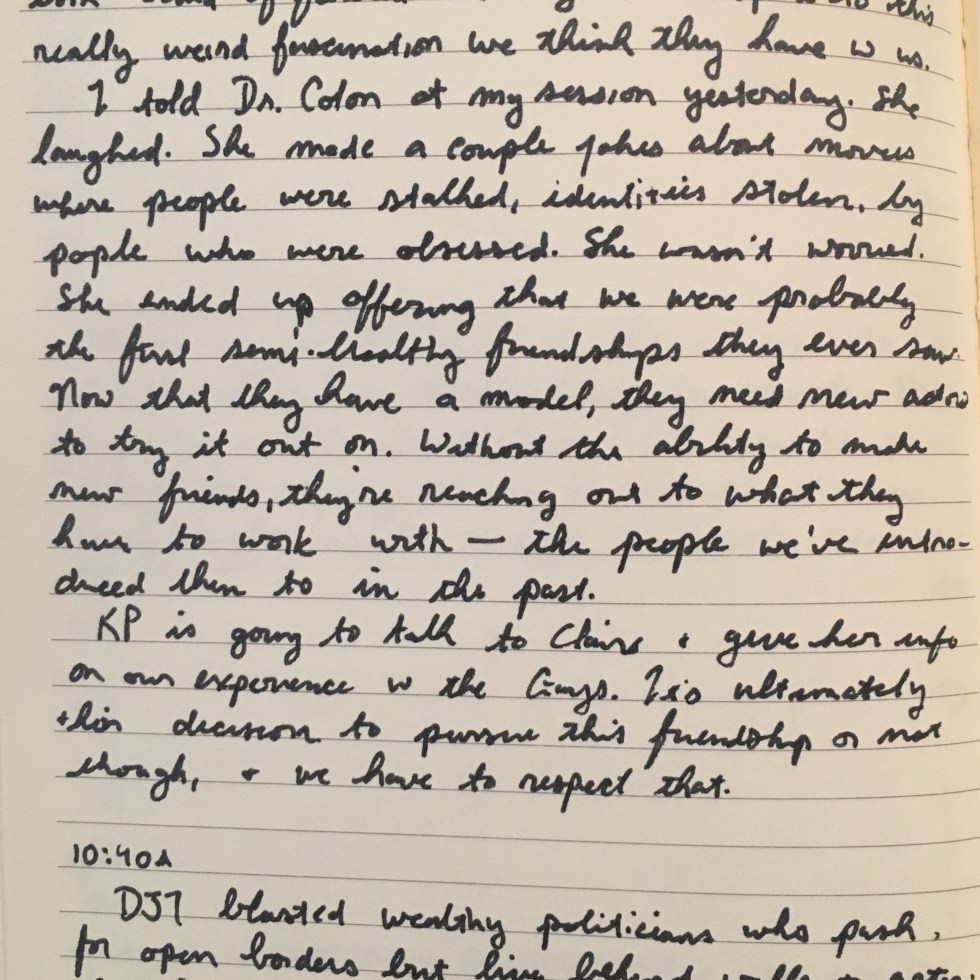 this
really weird fascination we think they have w us.
I told Dr. Colon at my session yesterday. She
laughed. She made a couple jokes about movies
where people were stalked, identities stolen, by
pople who were obsessed. She wasn't worried.
She ended up offering that we were probably
the first semi-healthy friendships they ever saw.
Now that they have a model, they need new actors
to try it out on. Without the ability to make
new friends, they're reaching out to what they
have to work with — the people we've intro-
duced them to in the past.
KP is going to talk to Claire + give her info
on our experience w the Greys. It is ultimately
their decision to pursue this friendship or not
though, + we have to respect that.
10:40A
DJT blasted wealthy politicians who push
for open borders but live behind walls